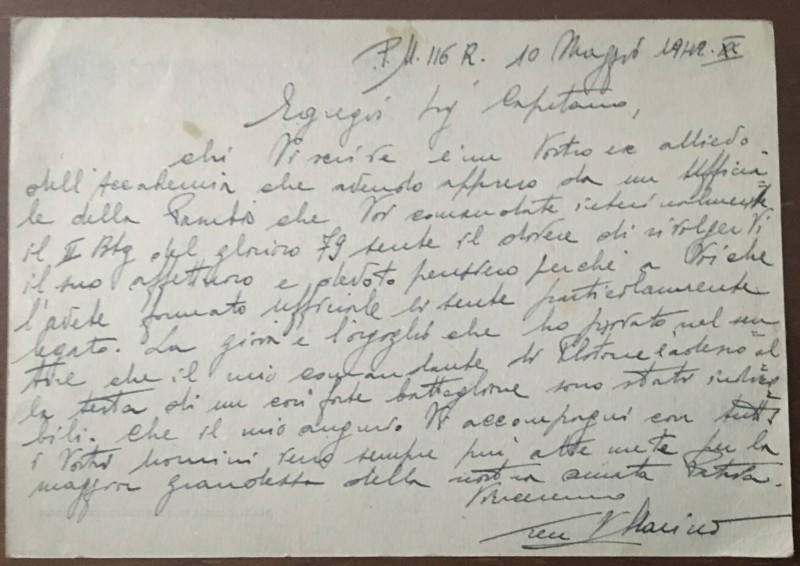 P.M. 116 R. 10 Maggio 1942. XX
Egregio Sig Capitano,
chi Vi scrive è un Vostro ex allievo
dell'Accademia che avendo appreso da un Ufficia=
le della che Voi comandate interinalmente
il II Btg del glorioso 79 sente il dovere di rivolgerVi
il suo affettuoso e devoto pensiero perchè a Voi che
l'avete formato ufficiale si sente particolarmente
legato. La gioia e l'orgoglio che ho provato nel sen=
tire che il mio comandante di Plotone è adesso al
la testa di un così forte battaglione sono stati indici=
bili. Che il mio augurio Vi accompagni con tutti
i Vostri uomini verso sempre più alte mete per la
maggior grandezza della nostra amata Patria.
Vinceremo
Ten V Marino